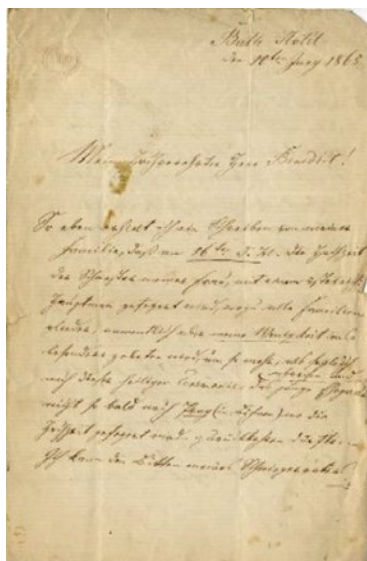 Bath Hotel
den 10ten Juny 1865
Mein hochverehrter Herr Benedikt!
So eben erhielt ich ein Schreiben von meiner
Familie, daß am 16ten d. Mt. die Hochzeit
der Schwester meiner Frau, mit einem
Hauptmann gefeiert wird, wozu alle Familien
glieder, namentlich aber meine Wenigkeit ins
besondere gebeten wird, um so mehr, als
nach dieser heiligen Ceremonie, das junge Ehepaar
nicht so bald nach Prag (in Böhmen) wo die
Hochzeit gefeiert wird, zurückkehren dürfte.
Ich kann den Bitten meiner Schwiegereltern